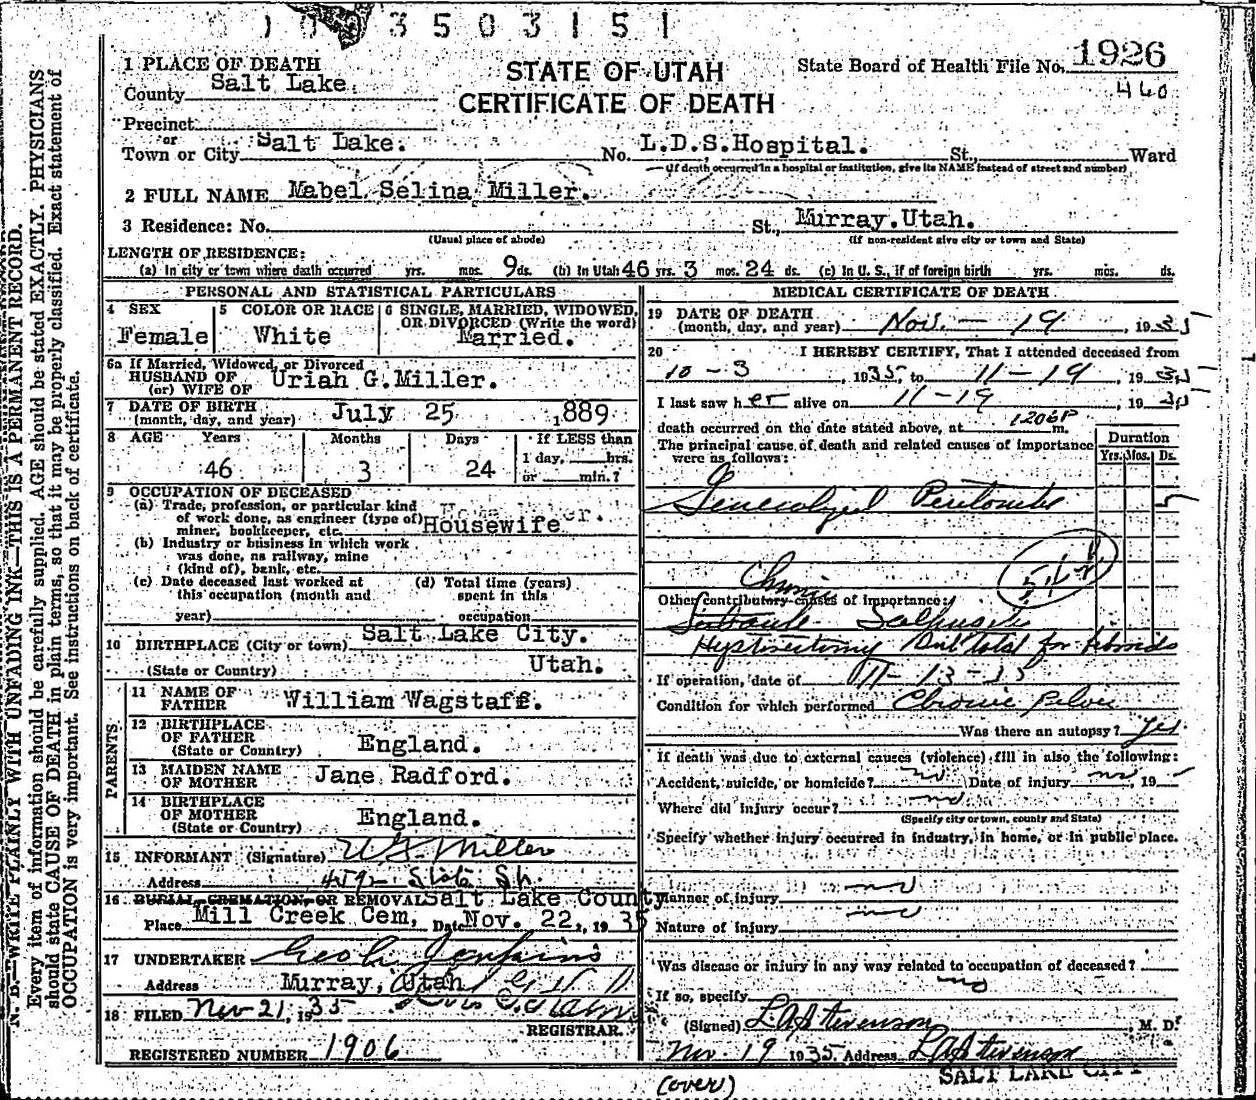 3503151
1 PLACE OF DEATH
STATE OF UTAH
CERTIFICATE OF DEATH
State Board of Health File No. 1926
460
County Salt Lake.
Precinct
or
Town or City Salt Lake. No. L.D.S.Hospital. St., Ward
(If death occurred in a hospital or institution, give its NAME instead of street and number)
2 FULL NAME Mabel Selina Miller.
3 Residence: No. St., Murray.Utah.
(Usual place of abode) (If non-resident give city or town and State)
LENGTH OF RESIDENCE:
(a) In city or town where death occurred yrs. mos. 9 ds. (b) In Utah 46 yrs. 3 mos. 24 ds. (c) In U. S., if of foreign birth yrs. mos. ds.
PERSONAL AND STATISTICAL PARTICULARS
4 SEX Female
5 COLOR OR RACE White
6 SINGLE, MARRIED, WIDOWED, OR DIVORCED (Write the word) Married.
6a If Married, Widowed, or Divorced
HUSBAND OF
(or) WIFE OF Uriah G.Miller.
7 DATE OF BIRTH
(month, day, and year) July 25 1889
8 AGE Years Months Days If LESS than
1 day, hrs.
46 3 24 or min.?
9 OCCUPATION OF DECEASED
(a) Trade, profession, or particular kind
of work done, as engineer (type of)
miner, bookkeeper, etc. Housewife
(b) Industry or business in which work
was done, as railway, mine
(kind of), bank, etc.
(c) Date deceased last worked at
this occupation (month and
year)
(d) Total time (years)
spent in this
occupation
10 BIRTHPLACE (City or town) Salt Lake City.
(State or Country) Utah.
PARENTS
11 NAME OF
FATHER William Wagstaff.
12 BIRTHPLACE
OF FATHER
(State or Country) England.
13 MAIDEN NAME
OF MOTHER Jane Radford.
14 BIRTHPLACE
OF MOTHER
(State or Country) England.
15 INFORMANT (Signature) U G Miller
Address State St.
16 BURIAL, CREMATION, OR REMOVAL Salt Lake County
Place Mill Creek Cem, Date Nov. 22, 1935
17 UNDERTAKER Geo Jenkins
Address Murray, Utah
18 FILED Nov 21, 1935
REGISTRAR.
REGISTERED NUMBER 1906
MEDICAL CERTIFICATE OF DEATH
19 DATE OF DEATH
(month, day, and year) Nov. - 19, 1935
20 I HEREBY CERTIFY, That I attended deceased from
10-3, 1935, to 11-19, 1935
I last saw her alive on 11-19, 1935
death occurred on the date stated above, at 1206P m.
The principal cause of death and related causes of importance
were as follows:
Duration
Yrs. Mos. Ds.
Generalized Peritonitis 5
Chronic
Other contributory causes of importance:
Salpingitis
Hysterectomy Subtotal for fibroids
If operation, date of 11-13-35
Condition for which performed Chronic Pelvic
Was there an autopsy? yes
If death was due to external causes (violence) fill in also the following:
Accident, suicide, or homicide? no Date of injury no, 19
Where did injury occur? no
(Specify city or town, county and State)
Specify whether injury occurred in industry, in home, or in public place.
no
Manner of injury
no
Nature of injury
Was disease or injury in any way related to occupation of deceased?
no
If so, specify
(Signed) L.A. Stevenson M. D.
Nov. 19 1935 Address L.A. Stevenson
SALT LAKE CITY
(over)
N. B.—WRITE PLAINLY WITH UNFADING INK—THIS IS A PERMANENT RECORD.
Every item of information should be carefully supplied. AGE should be stated EXACTLY. PHYSICIANS
should state CAUSE OF DEATH in plain terms, so that it may be properly classified. Exact statement of
OCCUPATION is very important. See instructions on back of certificate.